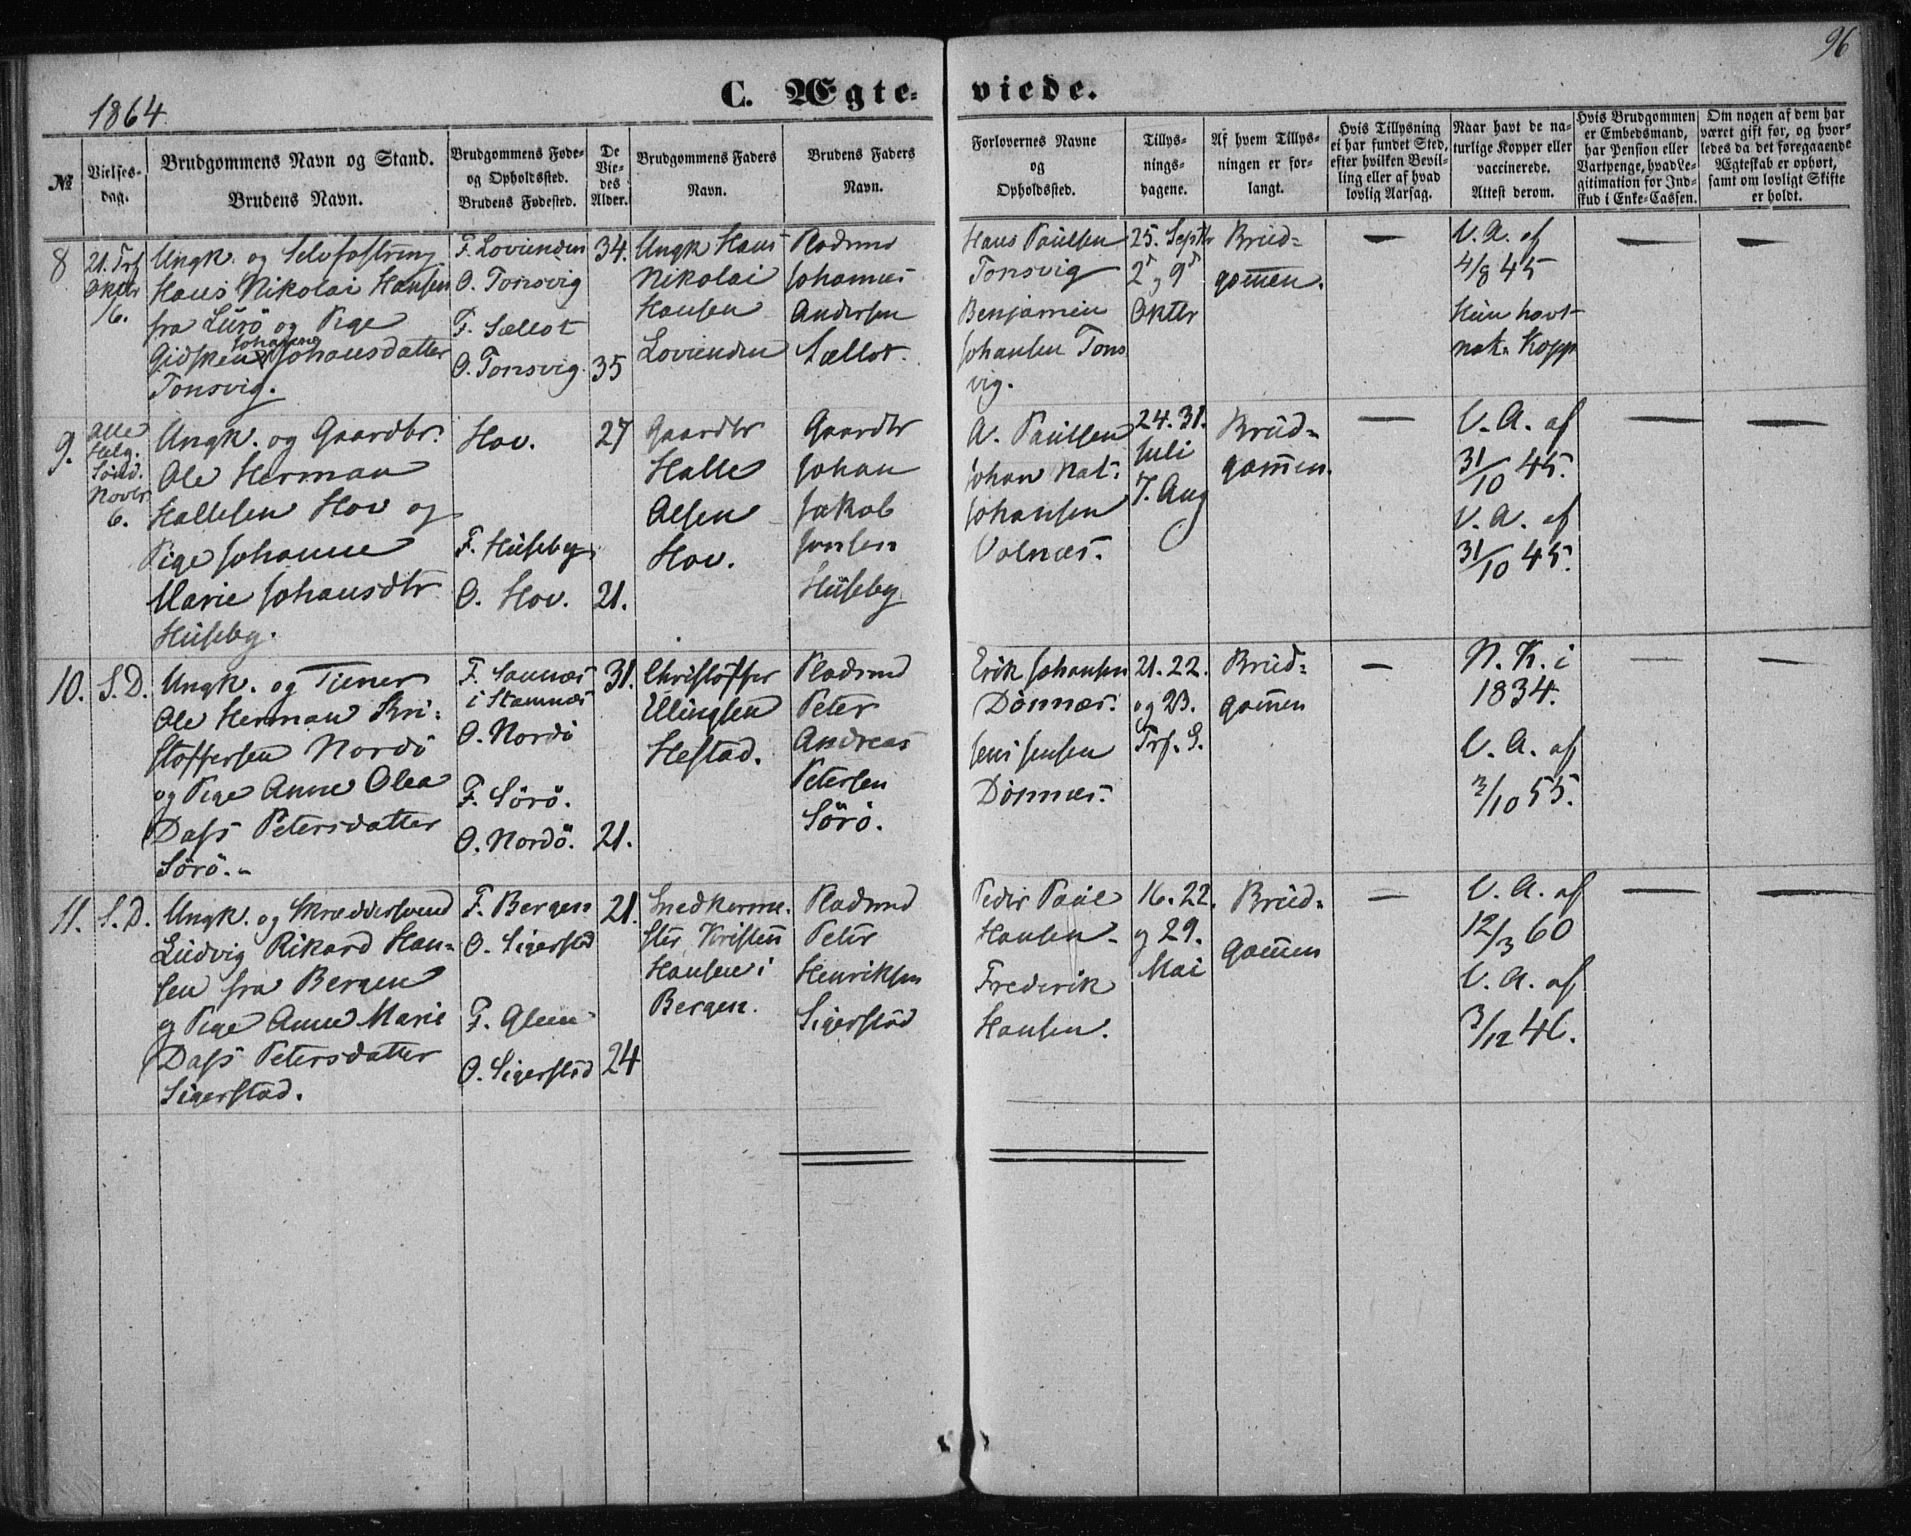 96
1864.
C. Ægte- viede.
№
Vielses-
dag.
Brudgommens Navn og Stand.
Brudens Navn.
Brudgommens Føde-
og Opholdssted.
Brudens Fødested.
De
Vie-
des
Alder.
Brudgommens Faders
Navn.
Brudens Faders
Navn.
Forlovernes Navne
og
Opholdssted.
Tillys-
nings-
dagene.
Af hvem Tillys-
ningen er for-
langt.
Hvis Tillysning
ei har fundet Sted,
efter hvilken Bevil-
ling eller af hvad
lovlig Aarsag.
Naar havt de na-
turlige Kopper eller
vaccinerede.
Attest derom.
Hvis Brudgommen
er Embedsmand,
har Pension eller
Vartpenge, hvad Le-
gitimation for Ind-
skud i Enke-Cassen.
Om nogen af dem har
været gift før, og hvor-
ledes da det foregaaende
Ægteskab er ophørt,
samt om lovligt Skifte
er holdt.
8
21. Trf
Oktbr
16.
Ungk. og Selvfostring
Hans Nikolai Hansen
fra Lurö og Pige
Johanne
Gidsken Johansdatter
Tonsvig.
F. Lovunden
O. Tonsvig
F. Sællot
O. Tonsvig
34.
35
Ungk Hans
Nikolai
Hansen
Lovunden
Pladsmd
Johannes
Andersen
Sællot.
Hans Paulsen
Tonsvig
Benjamin
Johansen Tons
vig.
25. Septbr
2d, 9d
Oktbr
Brud-
gommen.
—
V. A. af
4/8 45
Hun havt
nat. Kopp
—
—
9.
Alle
Helg.
Sønd.
Novbr
6.
Ungk. og Gaardbr.
Ole Herman
Hallesen Hov og
Pige Johanne
Marie Johansdtr
Huseby.
Hov.
F. Huseby
O. Hov.
27
21.
Gaardbr
Halle
Olsen
Hov.
Gaardbr
Johan
Jakob
Jonsen
Huseby
A. Paulsen
Johan Nat.
Johansen
Valnæs.
24. 31.
Juli
7. Aug
Brud-
gommen.
—
V. A. af
31/10 45.
V. A. af
31/10 45.
—
—
10.
S. D.
Ungk. og Tjener
Ole Herman Kri-
stoffersen Nordö
og Pige Anne Olea
Dass Petersdatter
Sörö.-
F. Sannæs
i Stamnæs
O. Nordö
F. Sörö.
O. Nordö.
31.
21.
Christoffer
Ellingsen
Hestad.
Pladsmd
Peter
Andreas
Petersen
Sörö.
Erik Johansen
Dönnæs.
Jens Jensen
Dönnæs.
21. 22.
og 23.
Trf. S.
Brud-
gommen
—
N. K. i
1834.
V. A. af
/10 55.
—
—
11.
S. D.
Ungk. og Skræddersvend
Ludvig Rikard Han-
sen fra Bergen
og Pige Anne Marie
Dass Petersdatter
Sigerstad.
F. Bergen
O. Sigerstad
F. Glein
O. Sigerstad
21.
24
Snedkerme-
ster Kristen
Hansen i
Bergen.
Pladsmd
Peter
Henriksen
Sigerstad
Peder Paul
Hansen
Frederik
Hansen.
16. 22.
og 29.
Mai
Brud-
gommen
—
V. A. af
12/3 60
V. A. af
3/12 46.
—
—